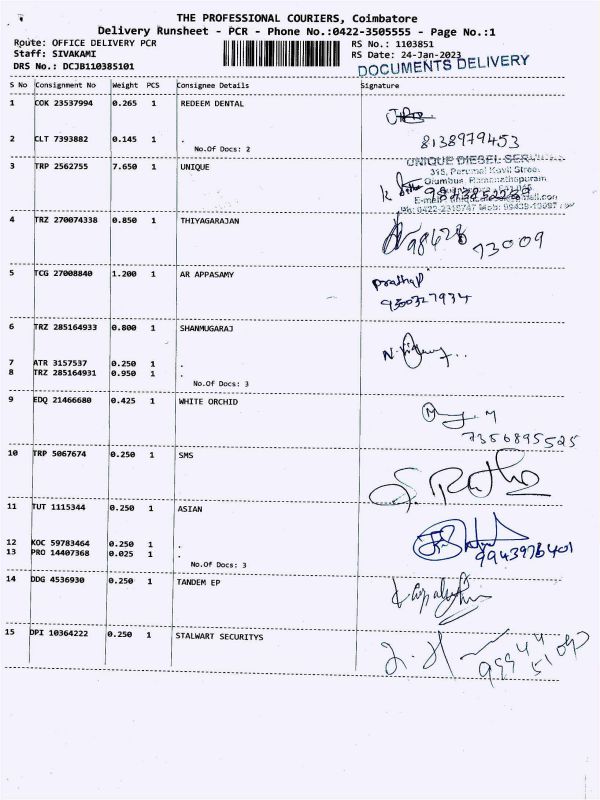 THE PROFESSIONAL COURIERS, Coimbatore
Delivery Runsheet - PCR - Phone No.:0422-3505555 - Page No.:1
Route: OFFICE DELIVERY PCR RS No.: 1103851
Staff: SIVAKAMI RS Date: 24-Jan-2023
DRS No.: DCJB110385101 DOCUMENTS DELIVERY
S No Consignment No Weight PCS Consignee Details Signature
1 COK 23537994 0.265 1 REDEEM DENTAL
2 CLT 7393882 0.145 1 . 8138979453
No.Of Docs: 2
UNIQUE DIESEL
3 TRP 2562755 7.650 1 UNIQUE
4 TRZ 270074338 0.850 1 THIYAGARAJAN
98428 73009
5 TCG 27008840 1.200 1 AR APPASAMY
6 TRZ 285164933 0.800 1 SHANMUGARAJ
7 ATR 3157537 0.250 1 .
8 TRZ 285164931 0.950 1 .
No.Of Docs: 3
9 EDQ 21466680 0.425 1 WHITE ORCHID
7356895525
10 TRP 5067674 0.250 1 SMS
11 TUT 1115344 0.250 1 ASIAN
12 KOC 59783464 0.250 1 .
13 PRO 14407368 0.025 1 .
No.Of Docs: 3
14 DDG 4536930 0.250 1 TANDEM EP
15 DPI 10364222 0.250 1 STALWART SECURITYS